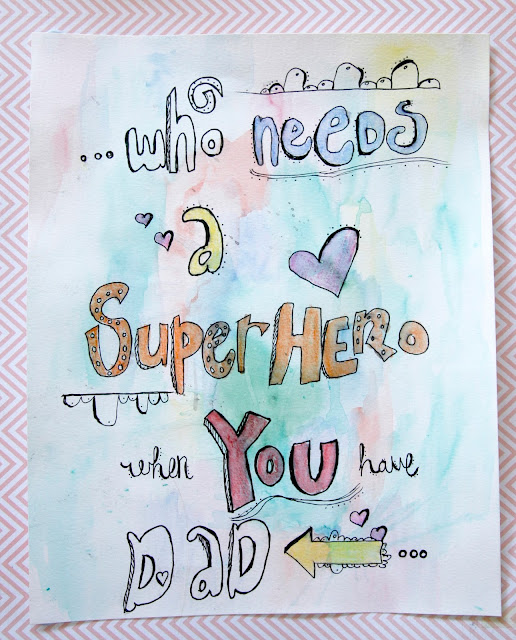 ...who needs
a
SuperHERo
when You have
DaD ...